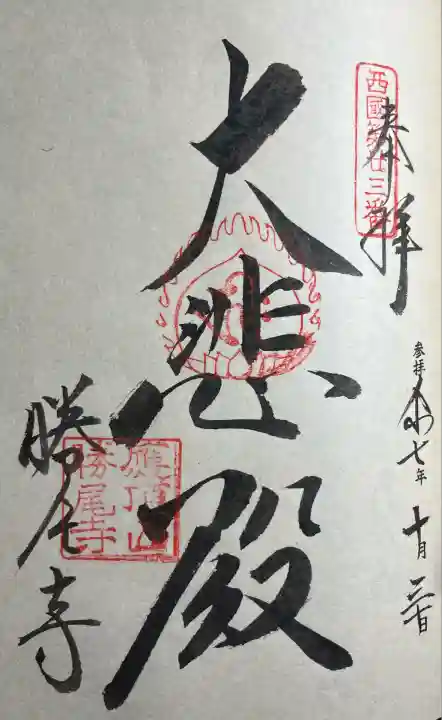 奉拝
西國第廿三番
参拝 令和七年 十月 三日
大悲殿
應頂山
勝尾寺
勝尾寺